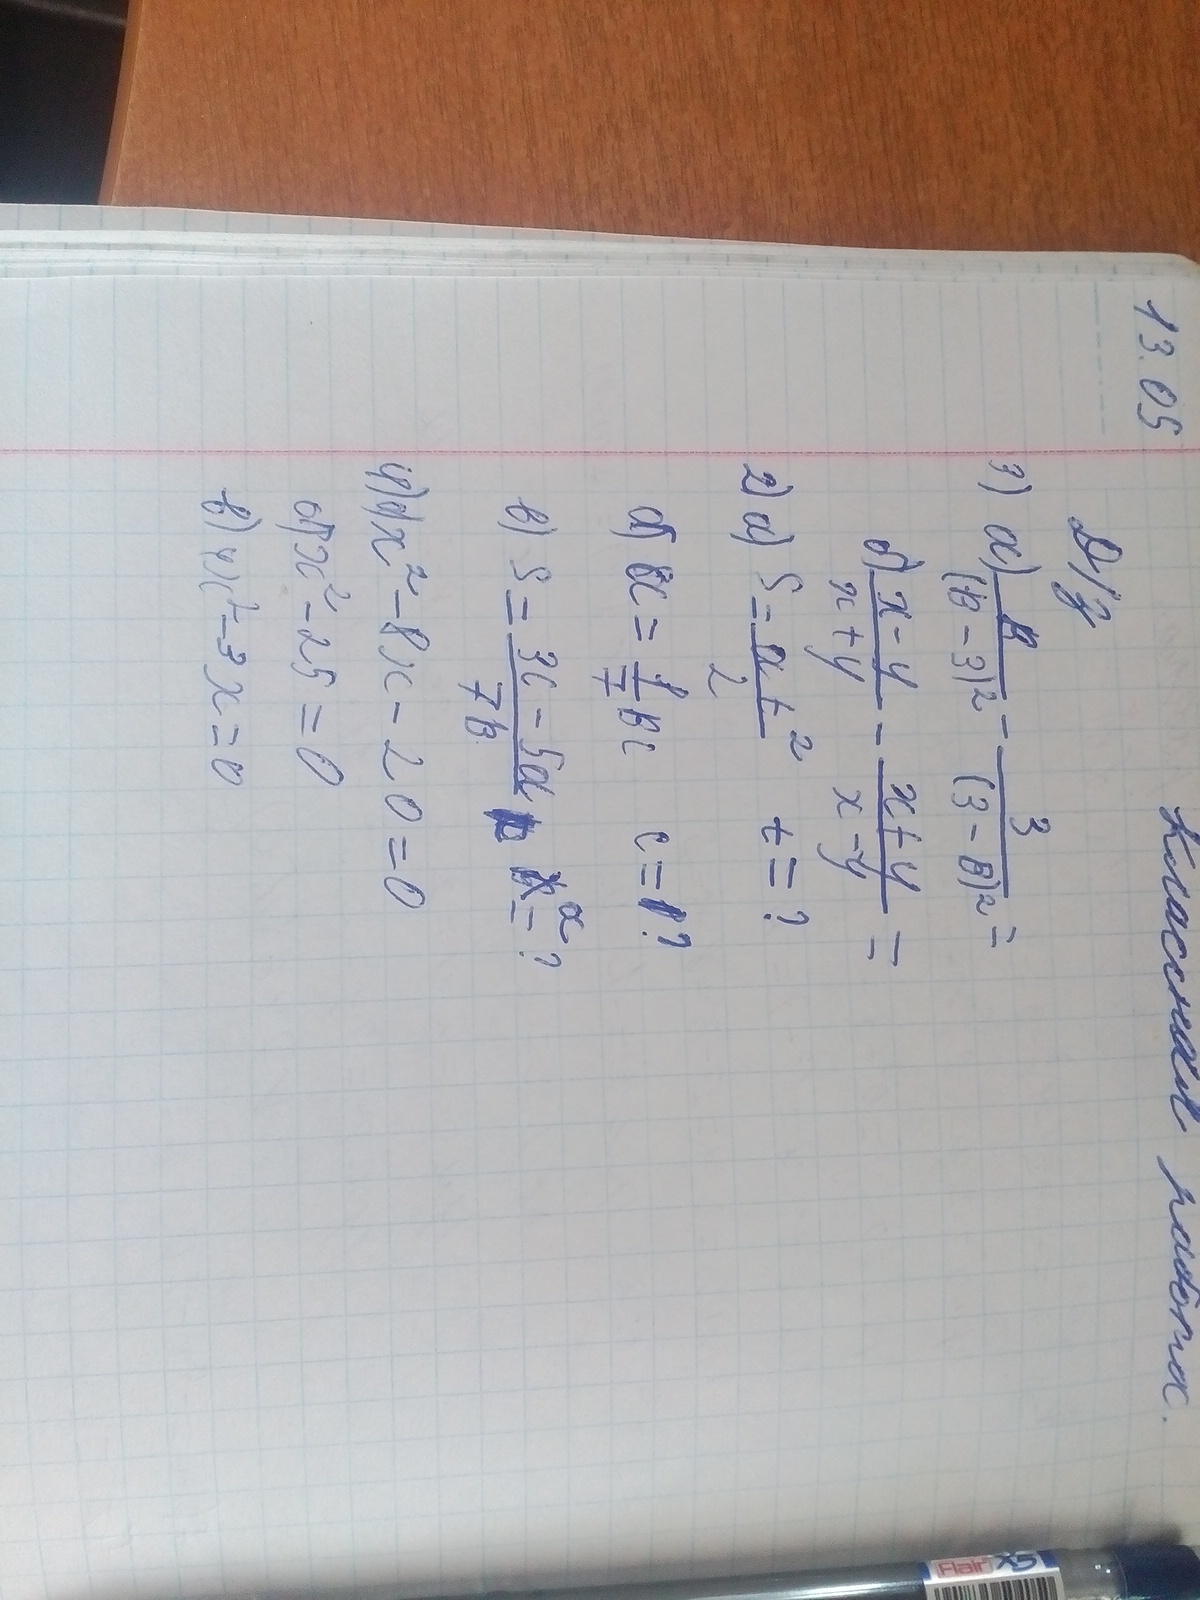 13.05 Классная работа.
Д/з
1) а) в/(в-3)² - 3/(3-в)² =
б) x-y/x+y - x+y/x-y =
2) а) S = at²/2 t = ?
б) a = 1/7 bc c = ?
в) S = 3c-5a/7b a = ?
4) а) x² - 8x - 20 = 0
б) x² - 25 = 0
в) 4x² - 3x = 0
Flair X5